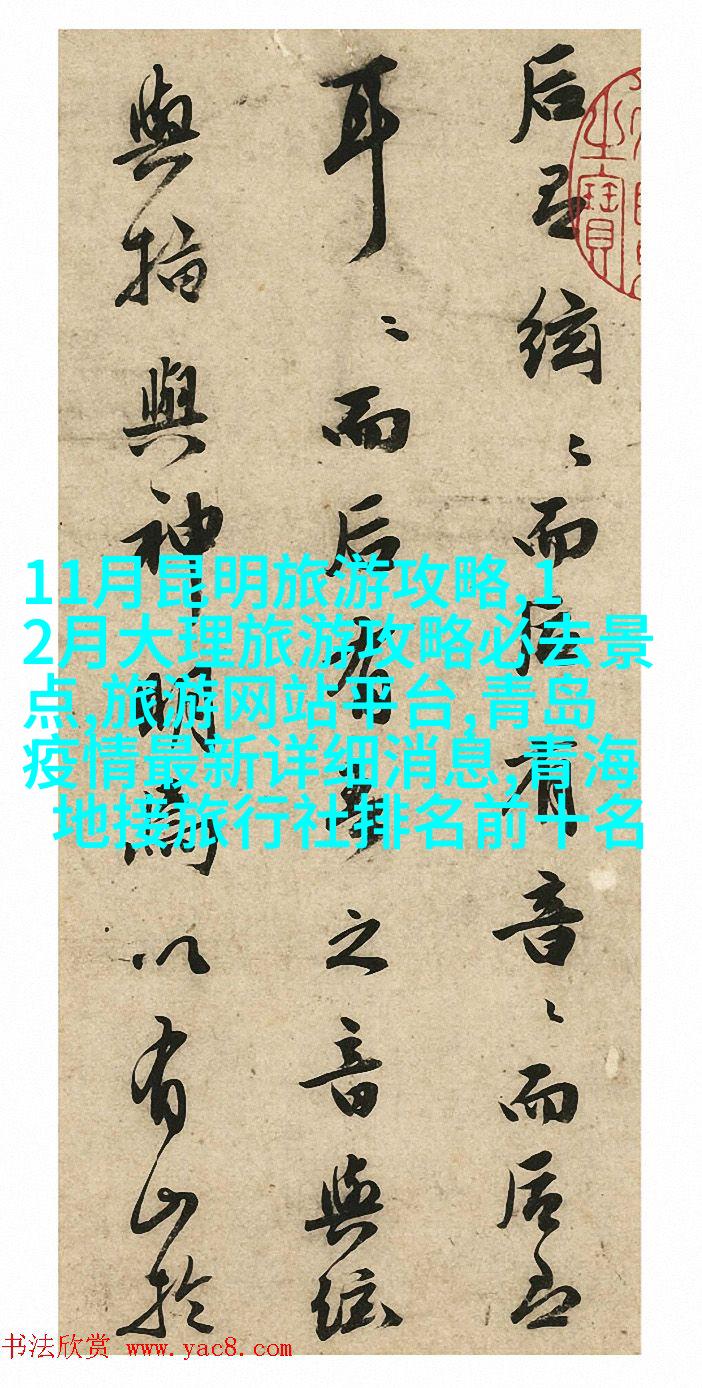 后絃〻而后有音〻而后
耳〻而后之音與絃
與指與神明為以有山於
之寶
11月昆明旅游攻略,1
2月大理旅游攻略必去景
点,旅游网站平台,青岛
疫情最新详细消息,青海
地接旅行社排名前十名
书法欣赏 www.yac8.com